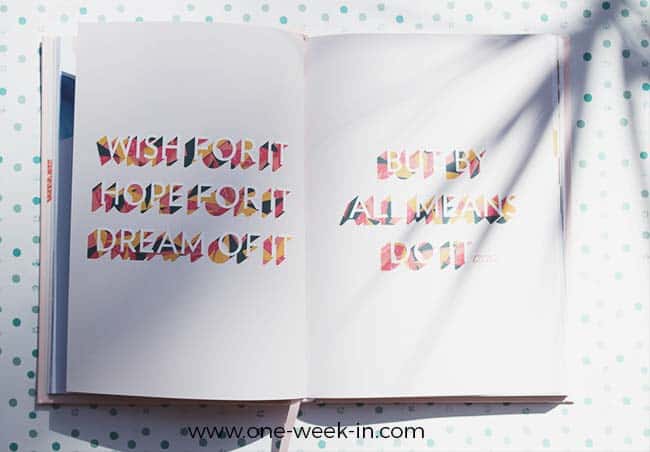 WISH FOR IT
HOPE FOR IT
DREAM OF IT
BUT BY
ALL MEANS
DO IT
www.one-week-in.com